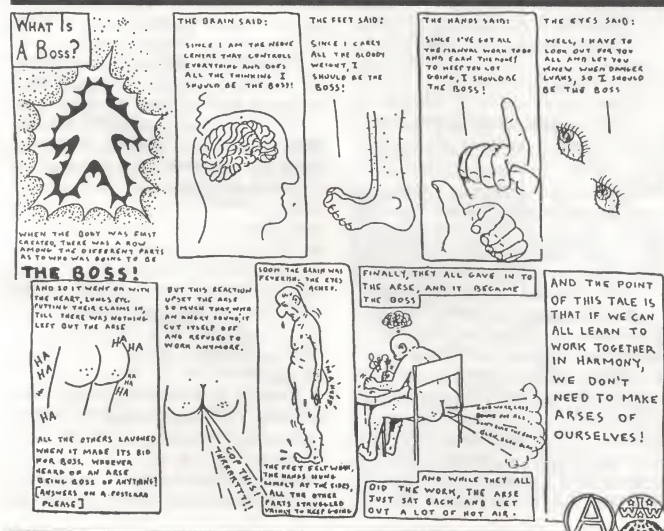 WHAT IS
A BOSS?
WHEN THE BODY WAS FIRST
CREATED, THERE WAS A ROW
AMONG THE DIFFERENT PARTS
AS TO WHO WAS GOING TO BE
THE BOSS!
THE BRAIN SAID:
SINCE I AM THE NERVE
CENTRE THAT CONTROLS
EVERYTHING AND DOES
ALL THE THINKING I
SHOULD BE THE BOSS!
THE FEET SAID:
SINCE I CARRY
ALL THE BLOODY
WEIGHT, I
SHOULD BE THE
BOSS!
THE HANDS SAID:
SINCE I'VE GOT ALL
THE MANUAL WORK TO DO
AND EARN THE MONEY
TO KEEP YOU LOT
GOING, I SHOULD BE
THE BOSS!
THE EYES SAID:
WELL, I HAVE TO
LOOK OUT FOR YOU
ALL AND LET YOU
KNOW WHEN DANGER
LURKS, SO I SHOULD
BE THE BOSS
AND SO IT WENT ON WITH
THE HEART, LUNGS ETC.
PUTTING THEIR CLAIMS IN,
TILL THERE WAS NOTHING
LEFT BUT THE ARSE
HA
HA
HA
HA
HA
HA
HA
HA
ALL THE OTHERS LAUGHED
WHEN IT MADE ITS BID
FOR BOSS, WHOEVER
HEARD OF AN ARSE
BEING BOSS OF ANYTHING?
[ANSWERS ON A POSTCARD
PLEASE]
BUT THIS REACTION
UPSET THE ARSE
SO MUCH THAT, WITH
AN ANGRY SOUND, IT
CUT ITSELF OFF
AND REFUSED TO
WORK ANYMORE.
COP THIS!
SOON THE BRAIN WAS
FEVERISH. THE EYES
ACHED.
THE FEET FELT WEAK,
THE HANDS HUNG
LIMPLY AT THE SIDES,
ALL THE OTHER
PARTS STRUGGLED
VAINLY TO KEEP GOING
FINALLY, THEY ALL GAVE IN TO
THE ARSE, AND IT BECAME
THE BOSS
AND WHILE THEY ALL
DID THE WORK, THE ARSE
JUST SAT BACK AND LET
OUT A LOT OF HOT AIR.
AND THE POINT
OF THIS TALE IS
THAT IF WE CAN
ALL LEARN TO
WORK TOGETHER
IN HARMONY,
WE DON'T
NEED TO MAKE
ARSES OF
OURSELVES!